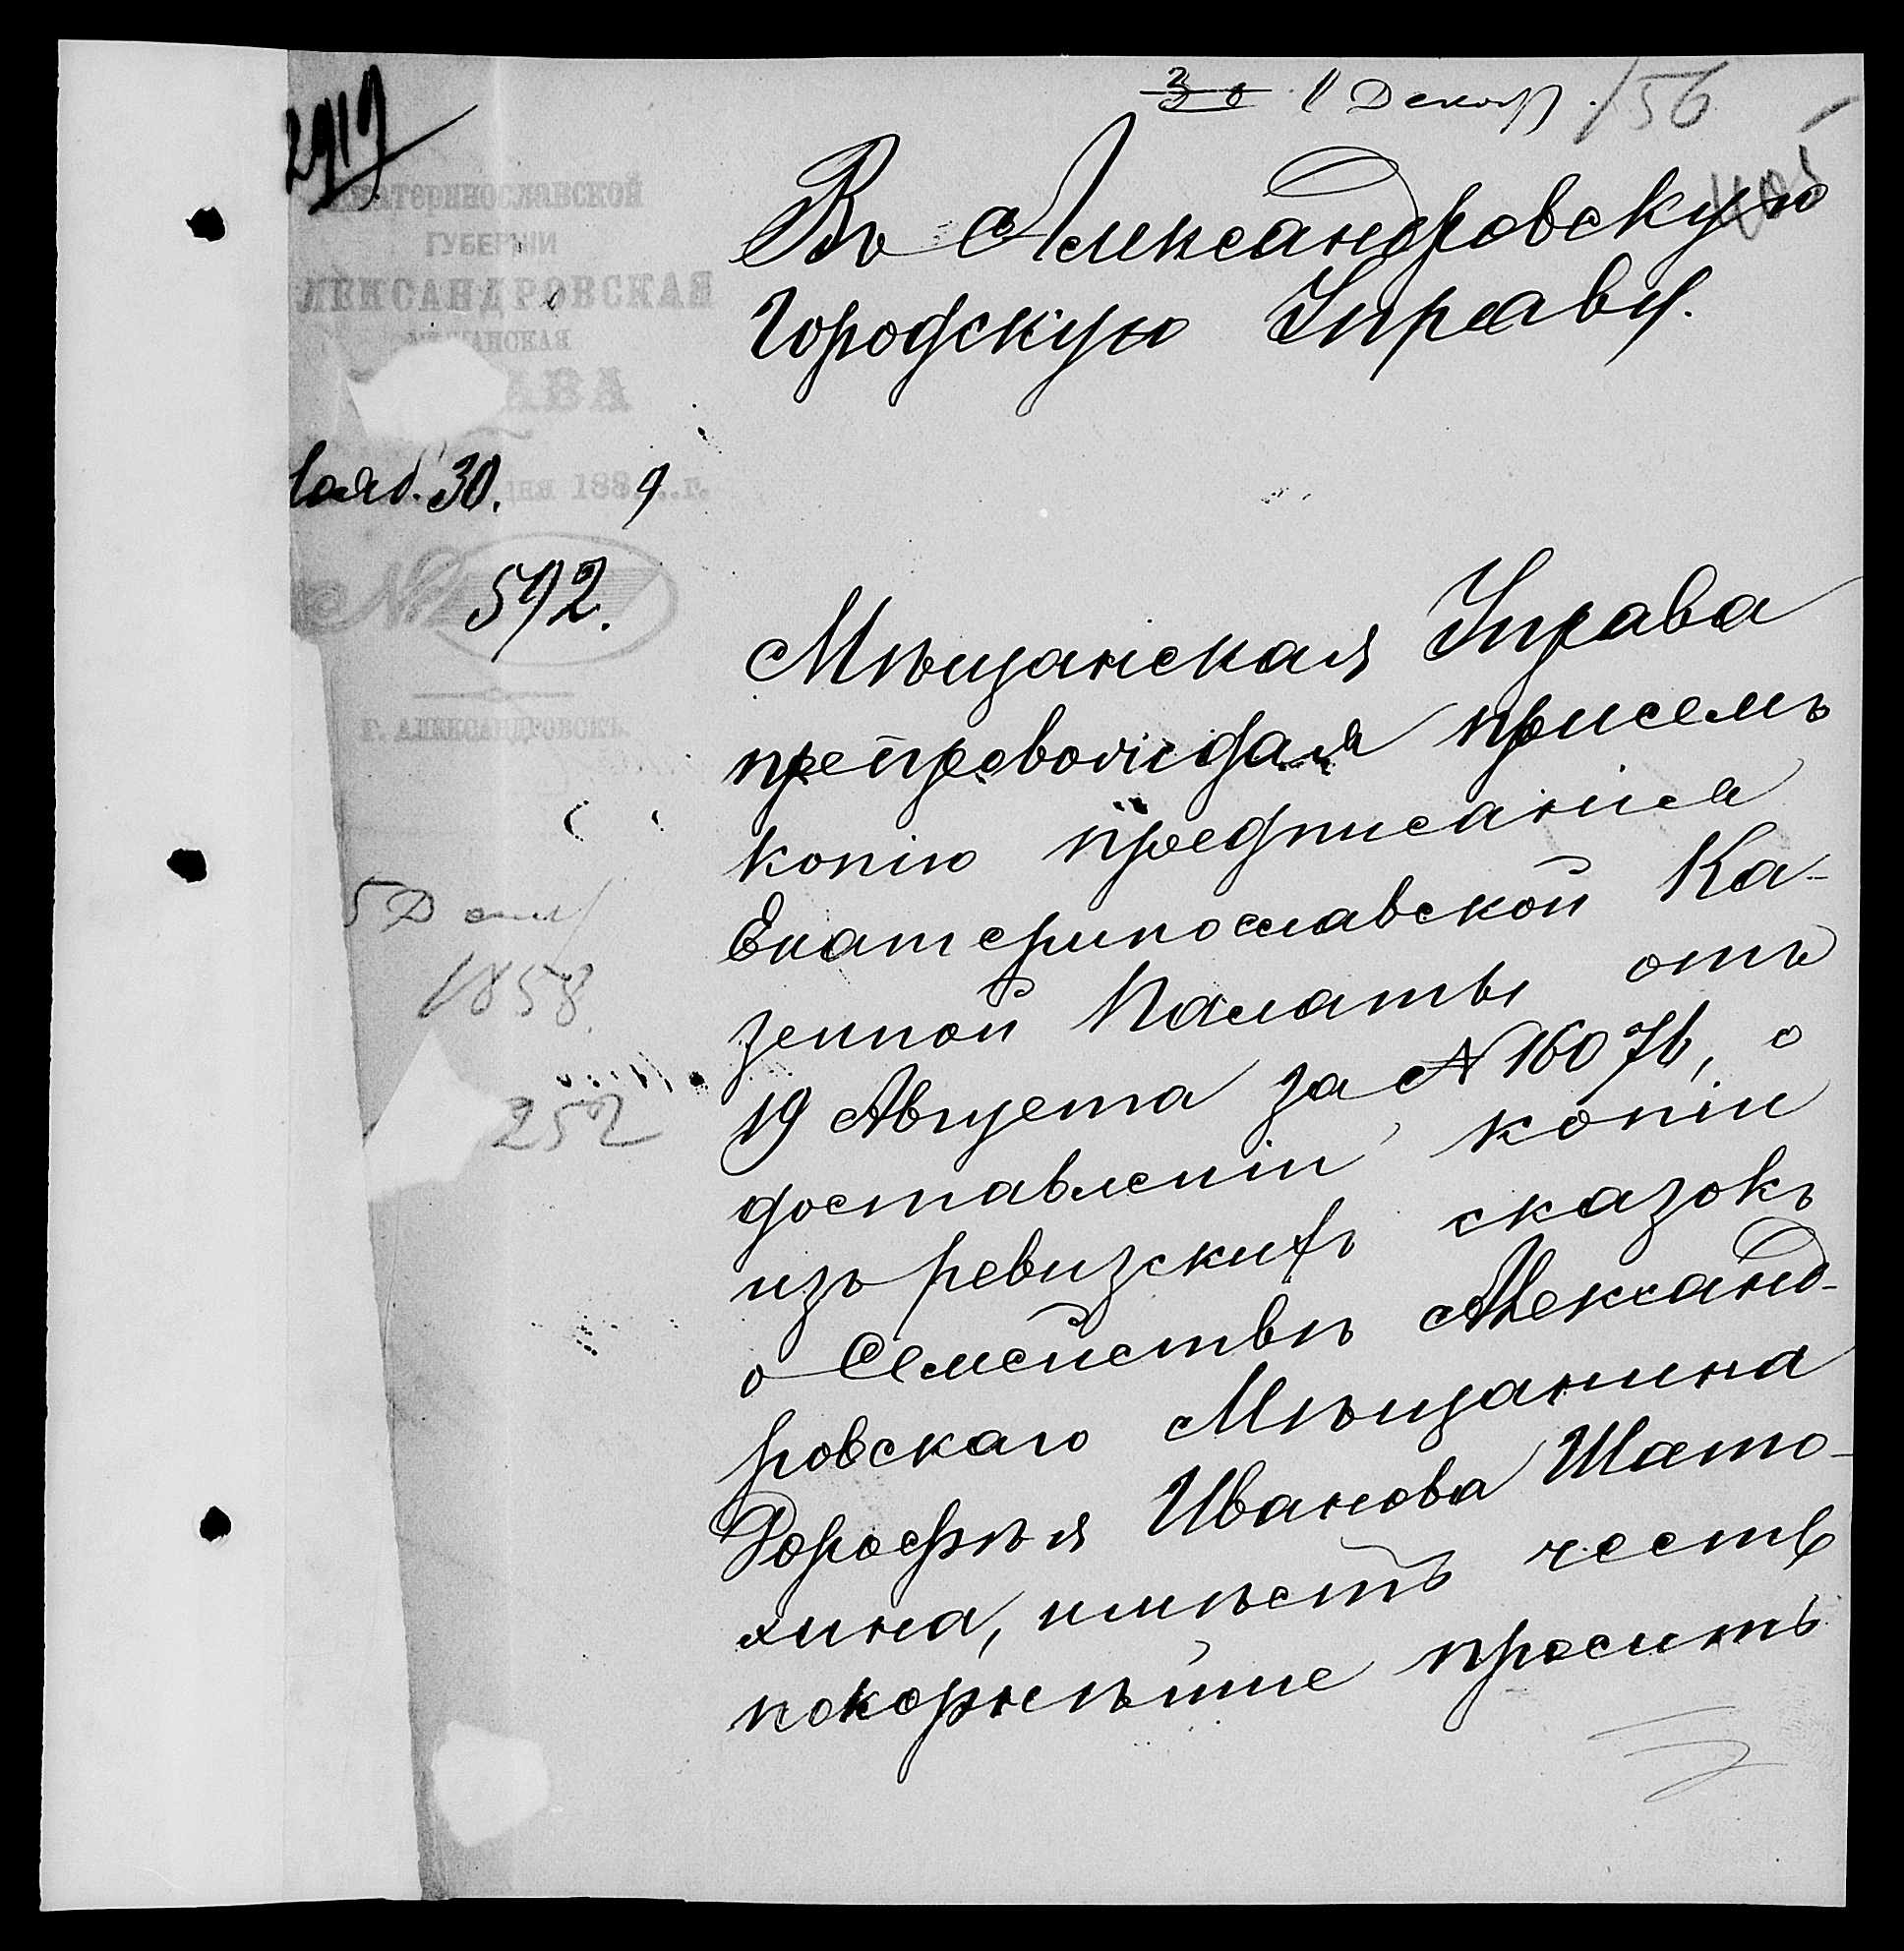 2919
11 Декабр. 156
ЕКАТЕРИНОСЛАВСКОЙ
ГУБЕРНІИ
ЛЕКСАНДРОВСКАЯ
АНСКАЯ
АВА
Нояб. 30. дня 1889 г.
№ 592.
Г. АЛЕКСАНДРОВСКЪ.
5 Декаб
1858.
252
Въ Александровскую
Городскую Управу.
Мѣщанская Управа
препровождая присемъ
копію предписанія
Екатеринославской Ка-
зенной Палаты отъ
19 Августа за № 16076, о
доставленіи копіи
изъ ревизскихъ сказокъ
о Семействѣ Александ-
ровскаго Мѣщанина
Дорофѣя Иванова Шато-
хина, имѣетъ честь
покорнѣйше просить